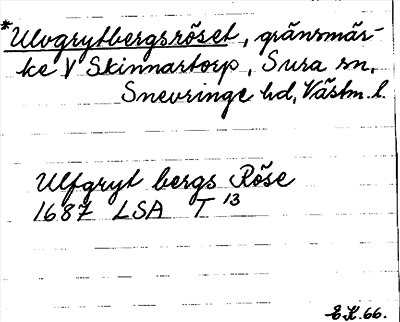 *Ulvgrytbergsröset, gränsmär-
ke V Skinnartorp, Sura sn,
Snevringe hd, Västm. l.
Ulfgryt bergs Röse
1687 LSA T 13
E.K. 66.